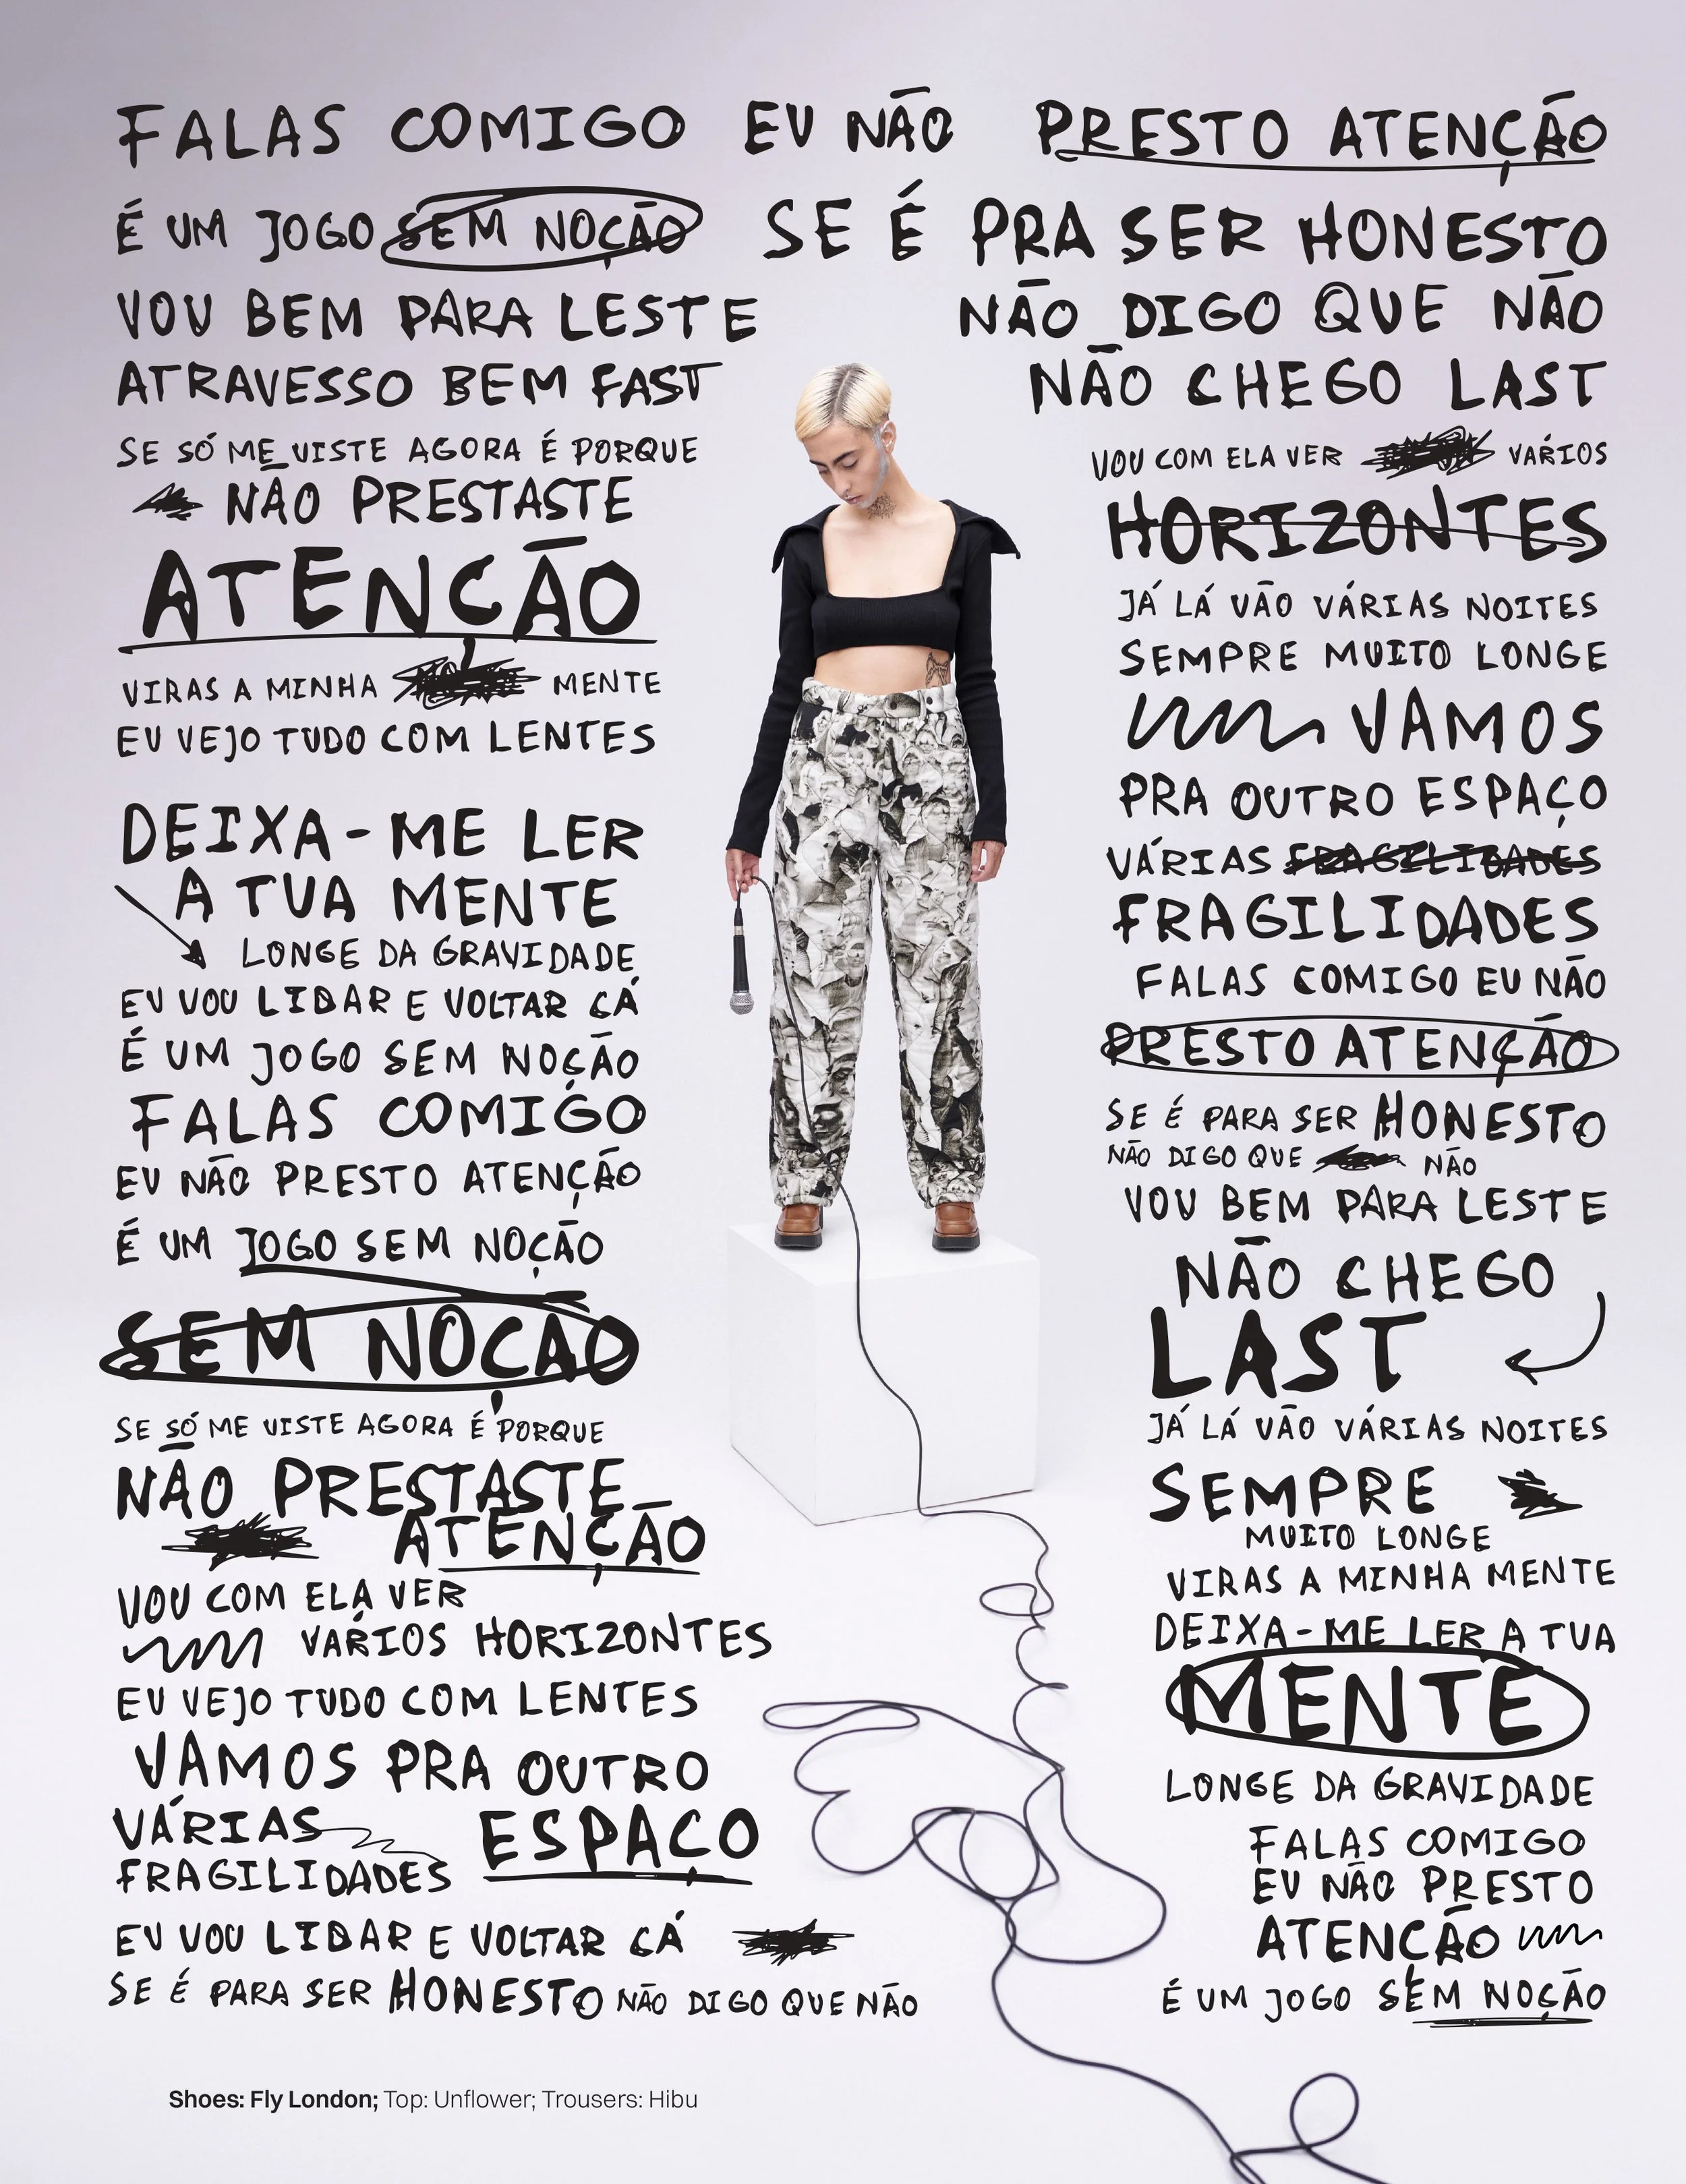 FALAS COMIGO EU NÃO PRESTO ATENÇÃO
É UM JOGO SEM NOÇÃO SE É PRA SER HONESTO
VOU BEM PARA LESTE NÃO DIGO QUE NÃO
ATRAVESSO BEM FAST NÃO CHEGO LAST
SE SÓ ME VISTE AGORA É PORQUE
NÃO PRESTASTE
ATENÇÃO
VIRAS A MINHA MENTE
EU VEJO TUDO COM LENTES
DEIXA-ME LER
A TUA MENTE
LONGE DA GRAVIDADE
EU VOU LIDAR E VOLTAR CÁ
É UM JOGO SEM NOÇÃO
FALAS COMIGO
EU NÃO PRESTO ATENÇÃO
É UM JOGO SEM NOÇÃO
SEM NOÇÃO
SE SÓ ME VISTE AGORA É PORQUE
NÃO PRESTASTE
ATENÇÃO
VOU COM ELA VER
VÁRIOS HORIZONTES
EU VEJO TUDO COM LENTES
VAMOS PRA OUTRO
VÁRIAS ESPAÇO
FRAGILIDADES
EU VOU LIDAR E VOLTAR CÁ
SE É PARA SER HONESTO NÃO DIGO QUE NÃO
VOU COM ELA VER VÁRIOS
HORIZONTES
JÁ LÁ VÃO VÁRIAS NOITES
SEMPRE MUITO LONGE
VAMOS
PRA OUTRO ESPAÇO
VÁRIAS FRAGILIDADES
FRAGILIDADES
FALAS COMIGO EU NÃO
PRESTO ATENÇÃO
SE É PARA SER HONESTO
NÃO DIGO QUE NÃO
VOU BEM PARA LESTE
NÃO CHEGO
LAST
JÁ LÁ VÃO VÁRIAS NOITES
SEMPRE
MUITO LONGE
VIRAS A MINHA MENTE
DEIXA-ME LER A TUA
MENTE
LONGE DA GRAVIDADE
FALAS COMIGO
EU NÃO PRESTO
ATENÇÃO
É UM JOGO SEM NOÇÃO
Shoes: Fly London; Top: Unflower; Trousers: Hibu